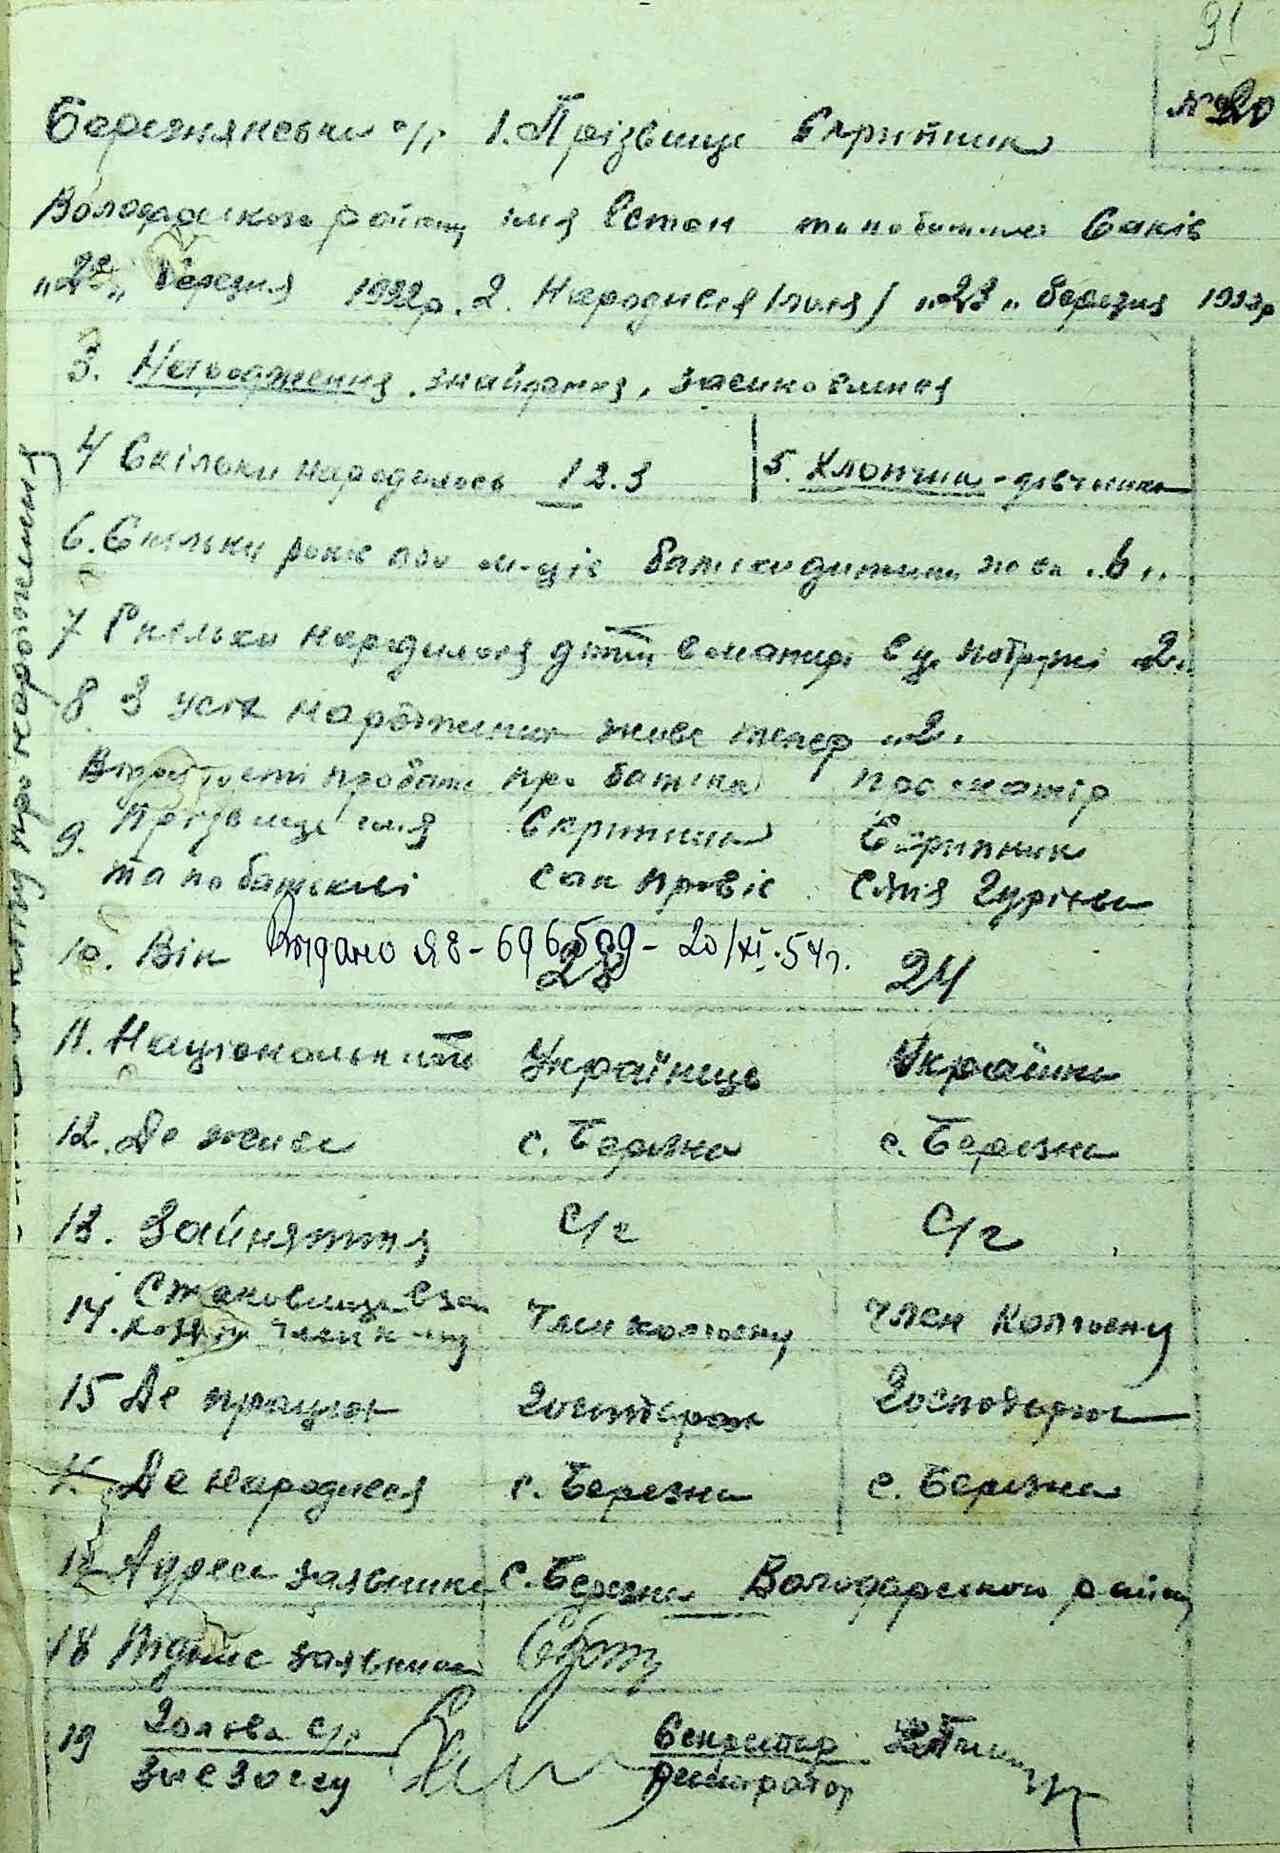 91
№ 20
Бережнянський с/р 1. Прізвище Скрипник
Володарського району імя Єстан та побатькові Саків
„23„ березня 1932р. 2. Народився /лася/ „23„ березня 1932р
3. Народження, знайдення, засиновлення
4 Скільки народилось 1 2.3 5. Хлопчик - дівчинка
6. Скільки років або м-ців батьки дитини жив. „6„
7 Скільки народилося дітей в матирі в ц. потружі „2„
8. З усіх народжених живе тепер „2„
Відомості про батька про матір
9. Прізвище імя Скрипник Скрипник
та побатькові Сак Гурієва
Видано ЯЗ - 696509 - 20/XI.54р.
10. Вік 28 24
11. Національність Українець Українка
12. Де живе с. Березна с. Березна
13. Зайняття С/г С/г
14. Становище в
член к-пу Член колгоспу Член колгоспу
15 Де працює Господарює Господарює
Де народився с. Березна с. Березна
17 Адреса заявника с. Березна Володарського району
18 Підпис заявника
19 Голова с/р Секретар
Зав ЗАГСу Реєстратор
про народження